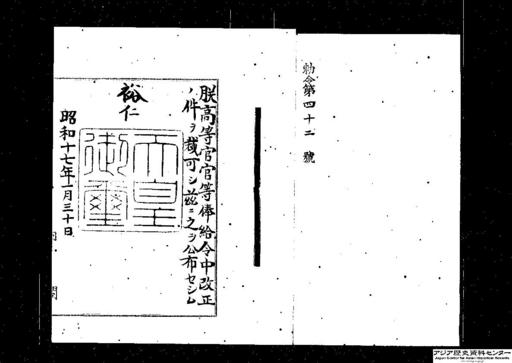 勅令第四十二號
朕高等官官等俸給令中改正
ノ件ヲ裁可シ茲ニ之ヲ公布セシム
裕仁
天皇御璽
昭和十七年一月三十日
内閣
アジア歴史資料センター
Japan Center for Asian Historical Records